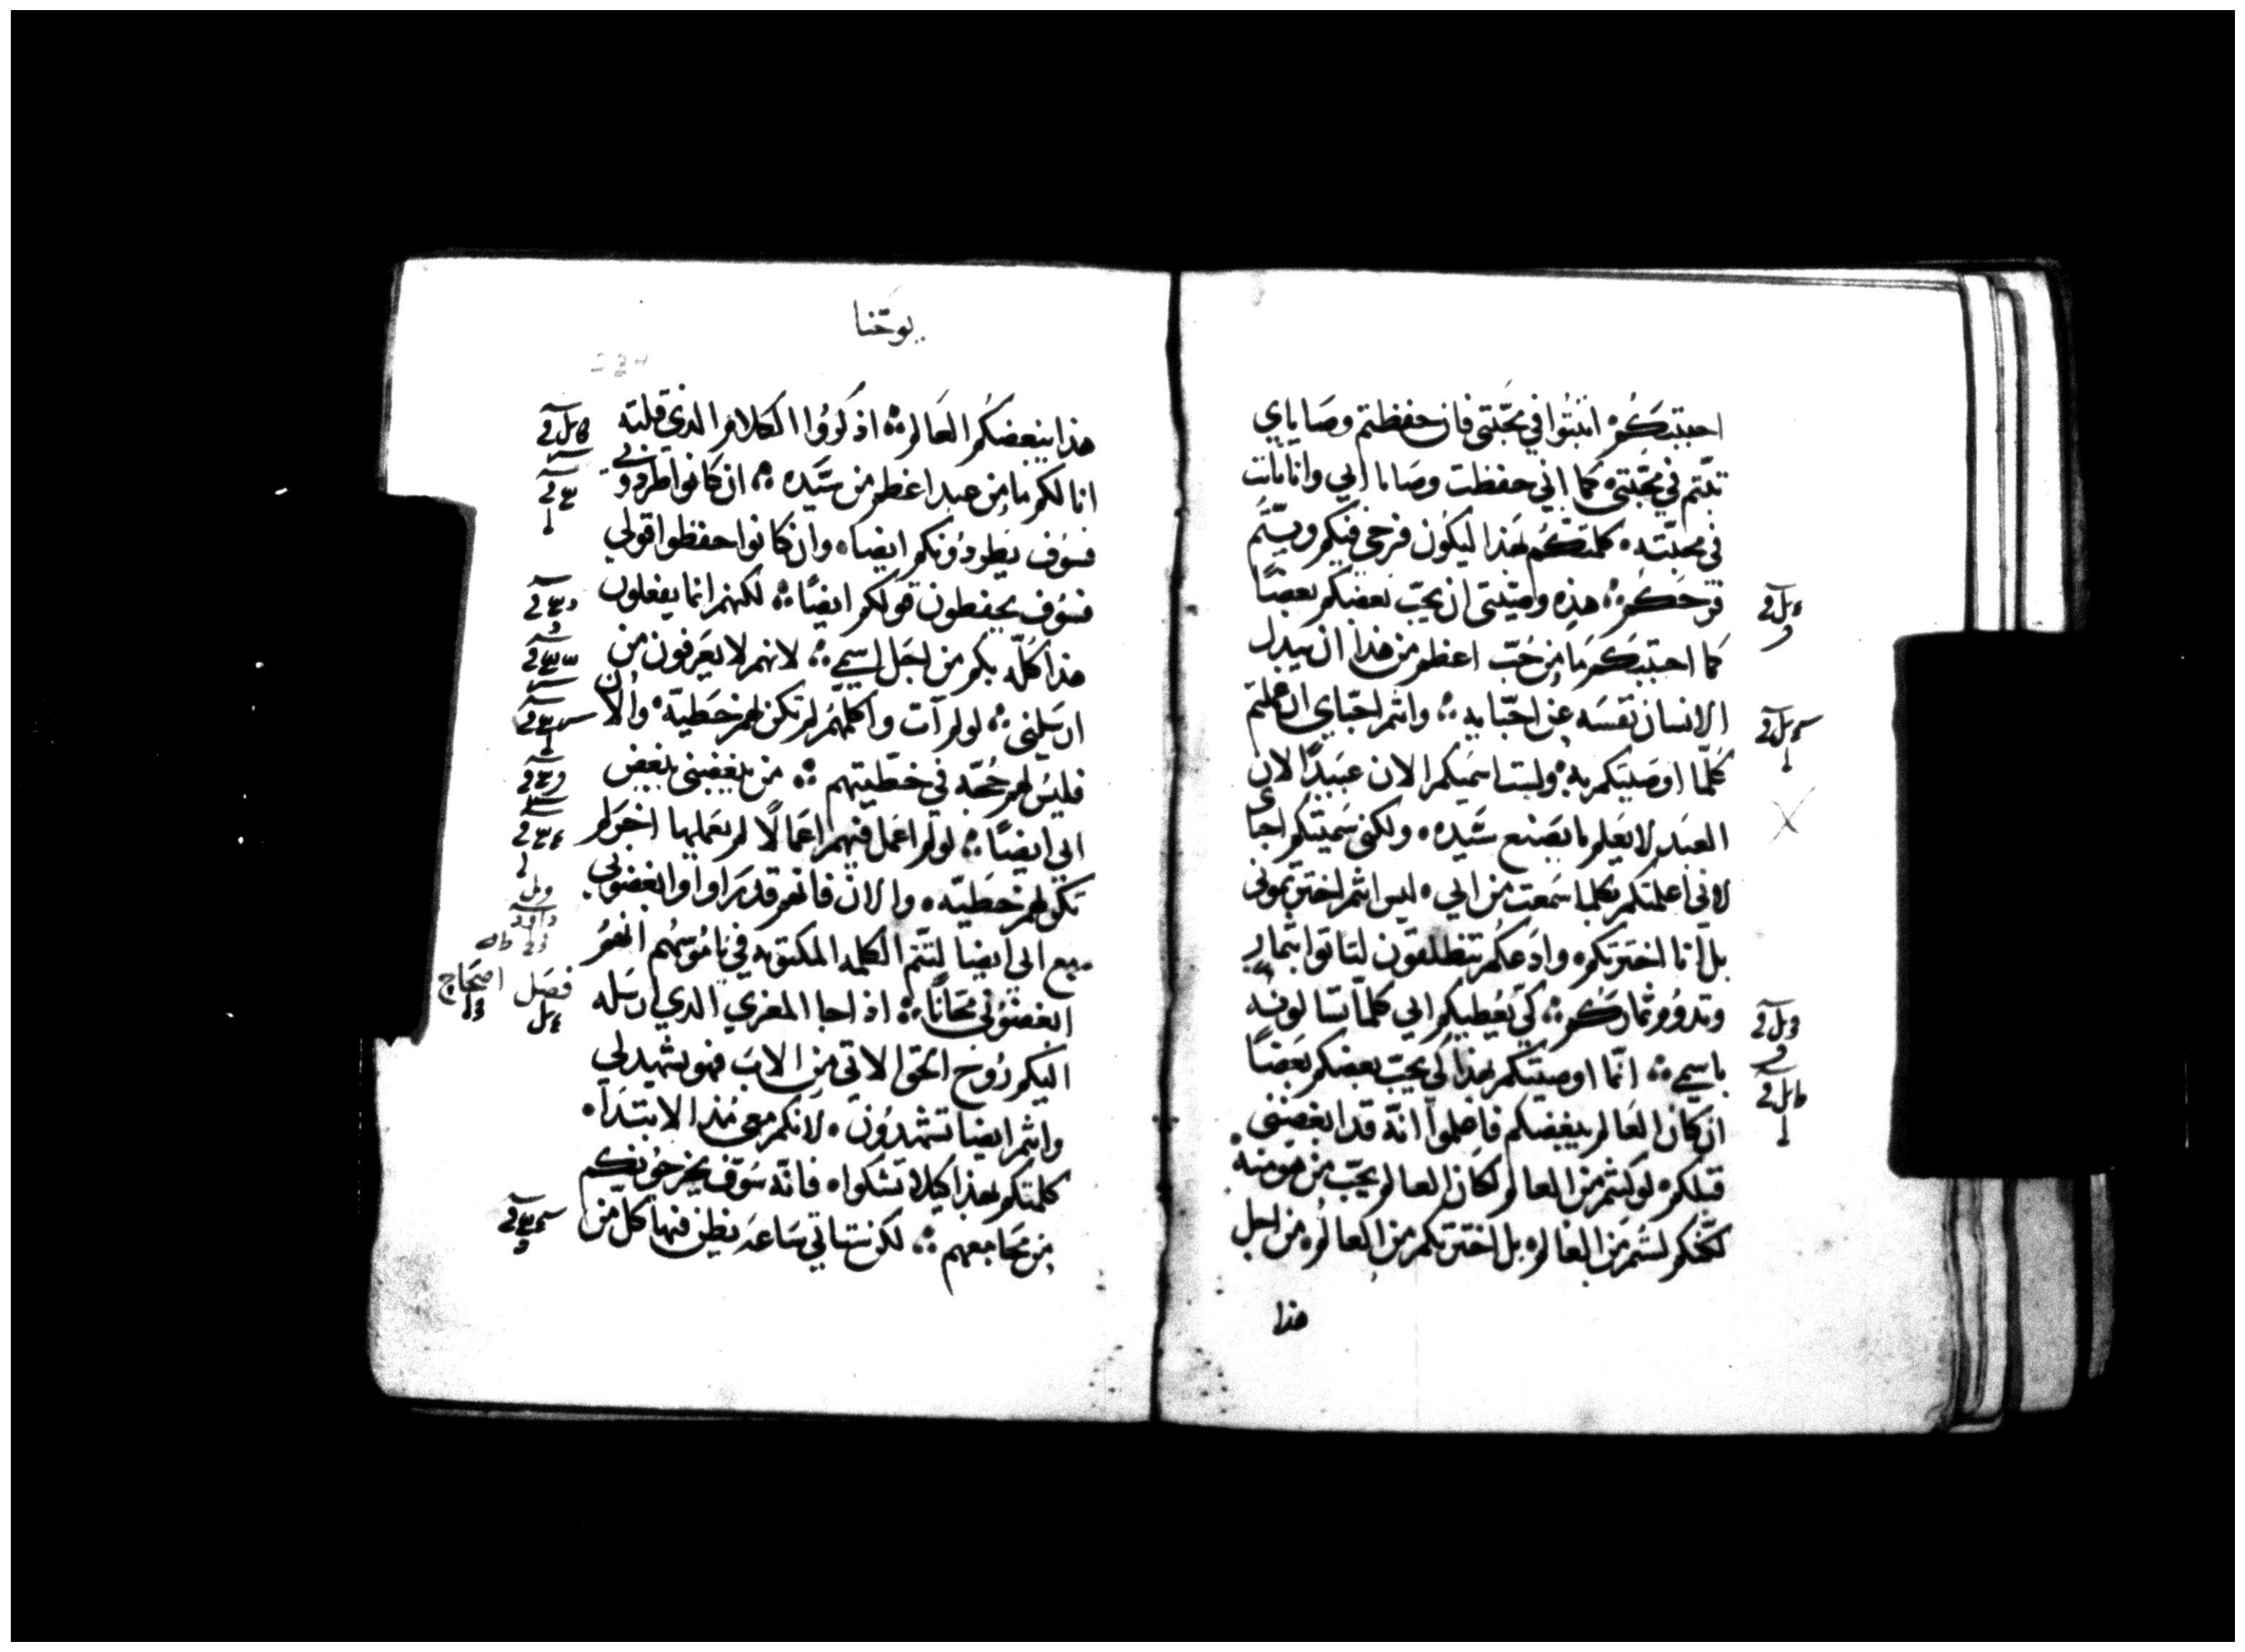 احببتكم اثبتوا في محبتي فان حفظتم وصاياي
تبتم في محبتي كما اني حفظت وصايا ابي وانا ثابت
في محبته كلمتكم بهذا ليكون فرحي فيكم ويتم
فرحكم هذه وصيتي ان يحب بعضكم بعضًا
كما احببتكم ما من حب اعظم من هذا ان يبدل
الانسان نفسه عن احبايه وانتم احباي ان عملتم
كلما اوصيتكم به ولست اسميكم الان عبيدًا لان
العبد لا يعلم ما يصنع سيده ولكني سميتكم احباي
لاني اعلمتكم بكلما سمعت من ابي ليس انتم اخترتموني
بل انا اخترتكم وادعكم تنطلقون لتاتوا بثمار
وتدوم ثماركم كي يعطيكم ابي كلما تسالونه
باسمي انما اوصيتكم بهذا كي يحب بعضكم بعضًا
ان كان العالم يبغضكم فاعلموا انه قد ابغضني
قبلكم لو كنتم من العالم لكان العالم يحب من هو منه
لكنكم لستم من العالم بل اخترتكم من العالم من اجل
هذا
يوحنا
هذا يبغضكم العالم اذكروا الكلام الدي قلته
انا لكم ما من عبد اعظم من سيده ان كانوا طردوني
فسوف يطردونكم ايضا وان كانوا حفظوا قولي
فسوف يحفظون قولكم ايضًا لكنهم انما يفعلون
هذا كله بكم من اجل اسمي لانهم لا يعرفون من
ارسلني لو لم آت واكلمهم لم تكن لهم خطية والان
فليس لهم حجه في خطيتهم من يبغضني يبغض
ابي ايضًا لو لم اعمل فيهم اعمالًا لم يعملها اخر لم
تكن لهم خطيه والان فانهم قد راوا وابغضوني
مع ابي ايضا لتتم الكلمه المكتوبه في ناموسهم انهم
ابغضوني مجانًا اذا جا المعزي الدي ارسله
اليكم روح الحق الاتي من الاب فهو يشهد لي
وانتم ايضا تشهدون لانكم معي منذ الابتدآ
كلمتكم بهذا كيلا تشكوا فانه سوف يخرجونكم
من مجامعهم لكن ستاتي ساعه يظن فيها كل من
داود
فصل اصحاح